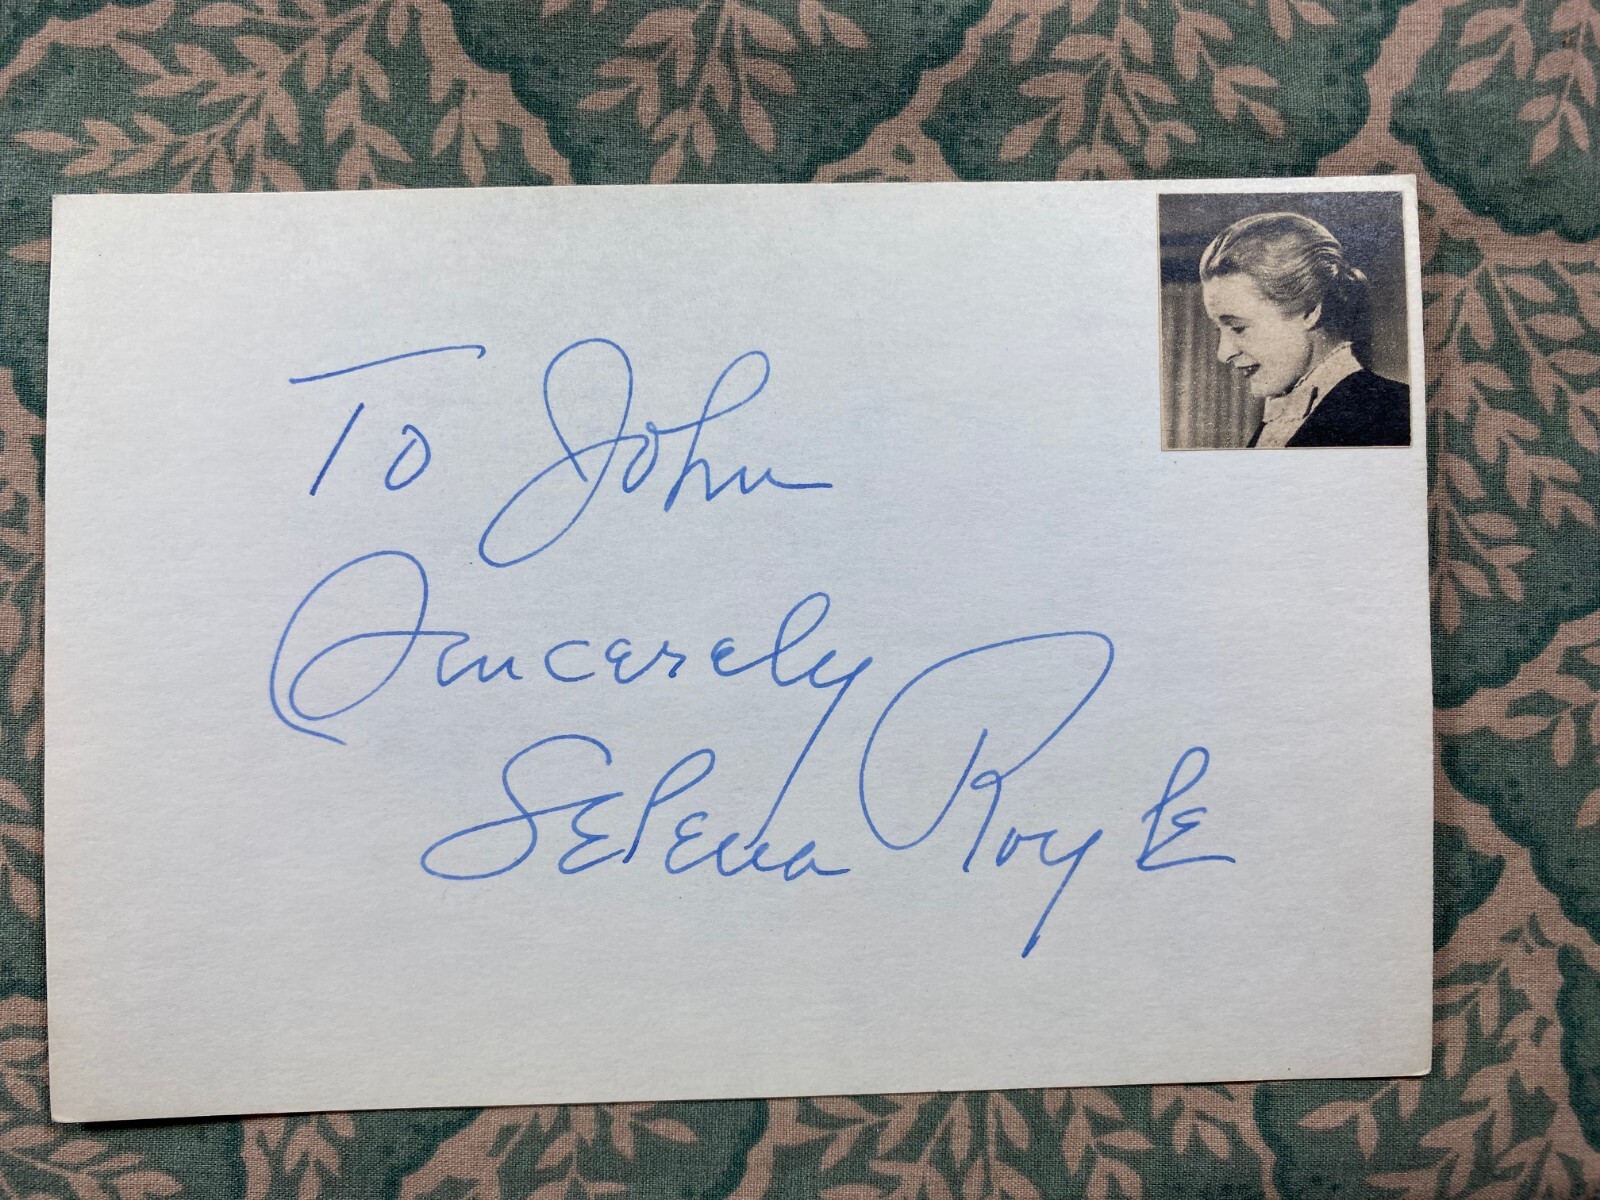 To John
Sincerely
Selena Royle